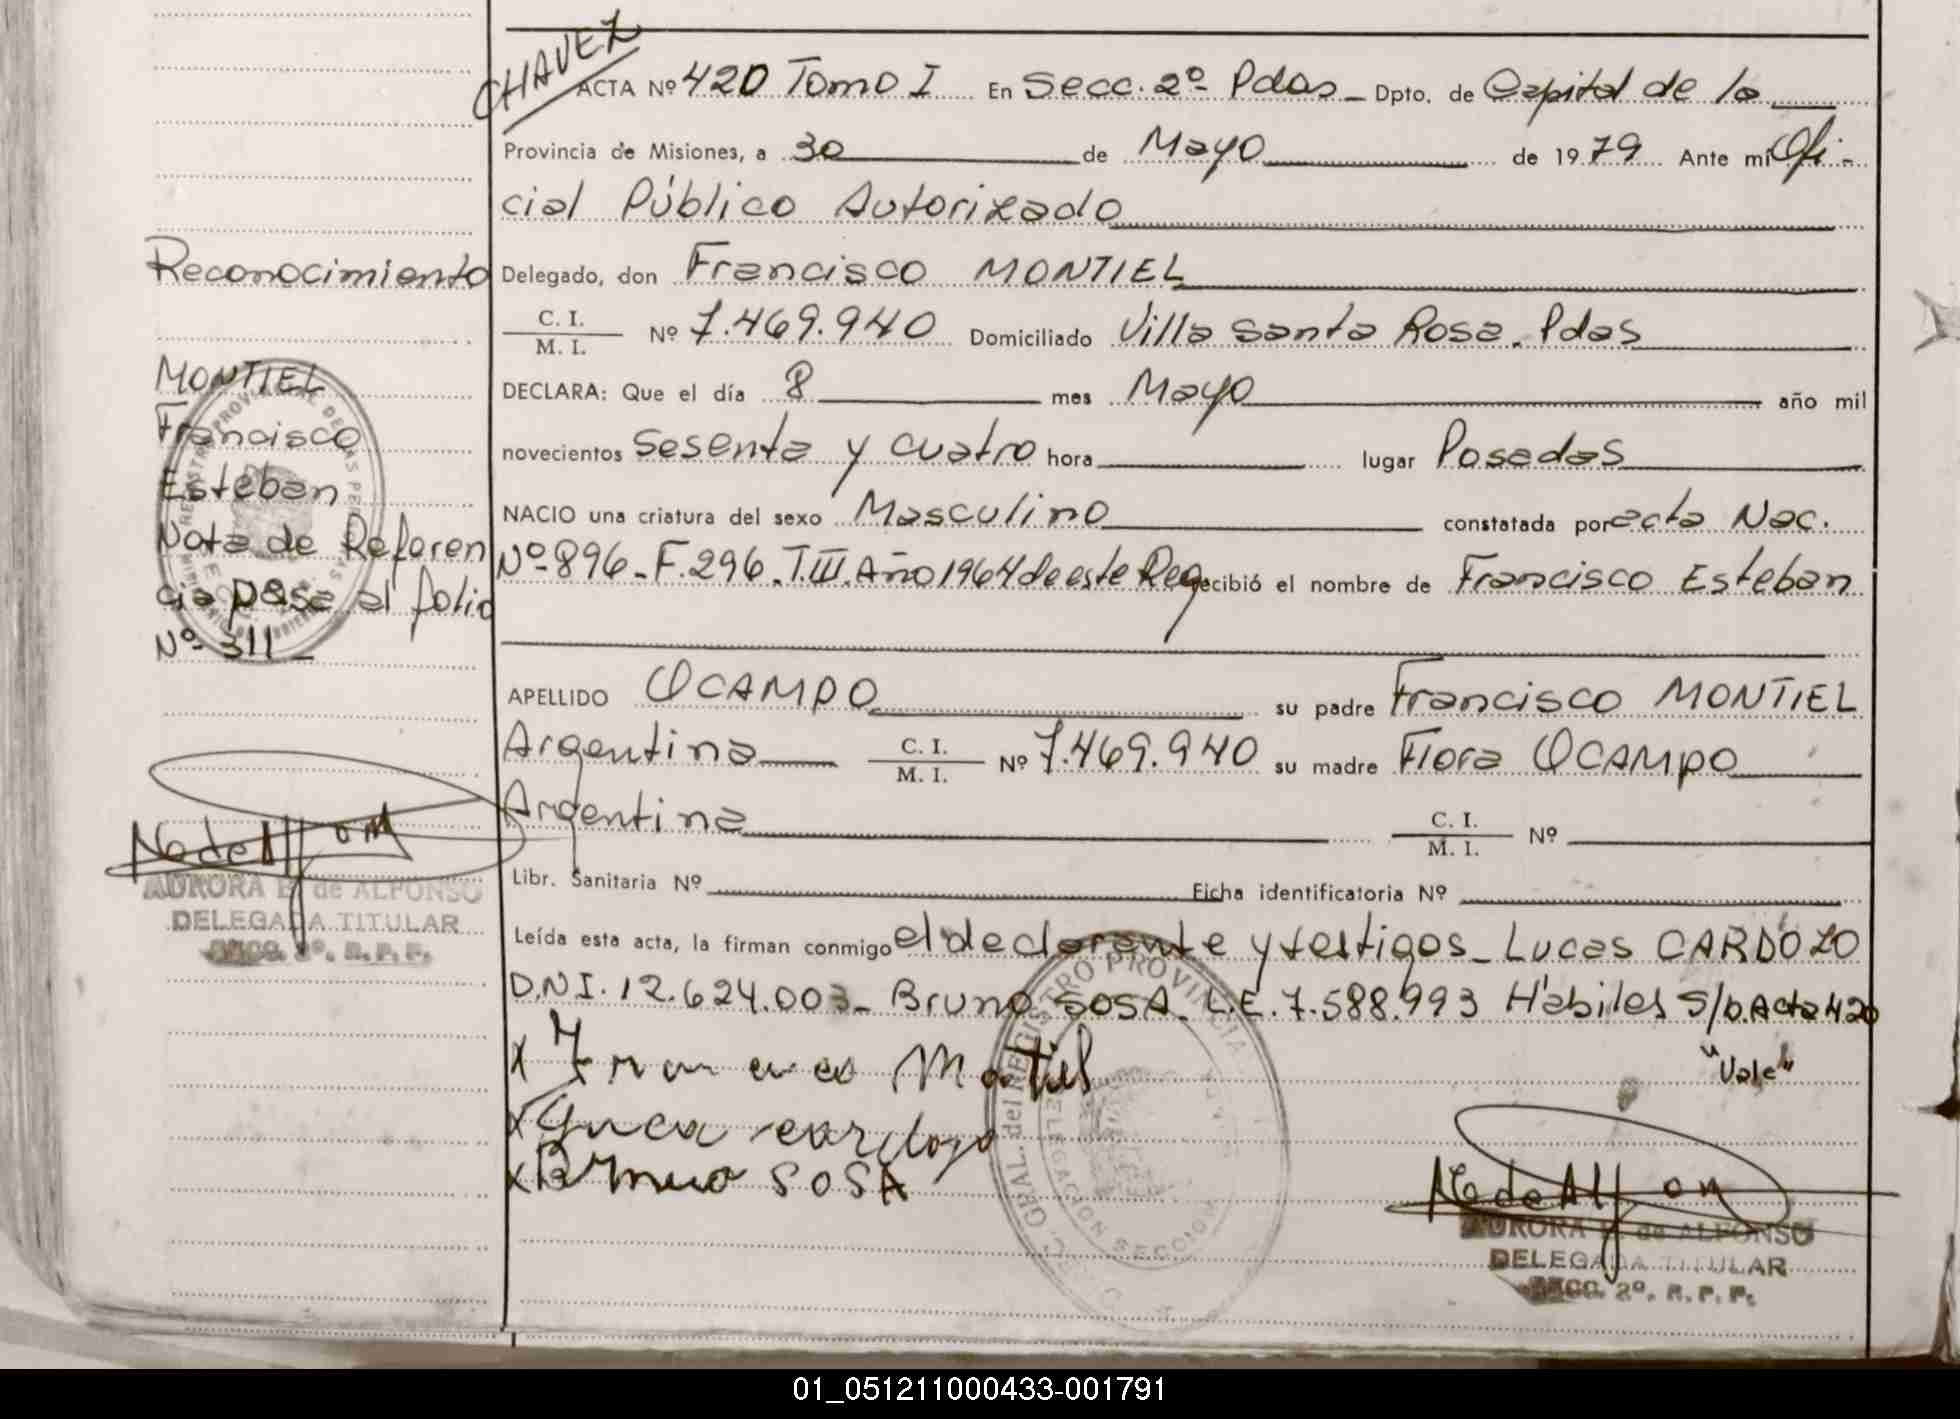 CHAVEZ
ACTA Nº 420 Tomo I En Secc. 2º Pdas Dpto. de Capital de la
Provincia de Misiones, a 30 de Mayo de 1979 Ante mí Ofi-
cial Público Autorizado
Reconocimiento
Delegado, don Francisco MONTIEL
C. I.
M. I. Nº 7.469.940 Domiciliado Villa Santa Rosa. Pdas
DECLARA: Que el día 8 mes Mayo año mil
novecientos sesenta y cuatro hora lugar Posadas
NACIO una criatura del sexo Masculino constatada por acta Nac.
Nº 896 - F. 296 - T. III. Año 1964 de este Reg recibió el nombre de Francisco Esteban
MONTIEL
Francisco
Esteban
Nota de Referen
cia pasa al folio
Nº 311
APELLIDO OCAMPO su padre Francisco MONTIEL
Argentina C. I.
M. I. Nº 7.469.940 su madre Flora OCAMPO
Argentina C. I.
M. I. Nº
Libr. Sanitaria Nº Ficha identificatoria Nº
AURORA de ALFONSO
DELEGADA TITULAR
SECC. 2º. R. P. P.
Leída esta acta, la firman conmigo el declarante y testigos - Lucas CARDOZO
D.N.I. 12.624.003 - Bruno SOSA - L.E. 7.588.993 Hábiles S/b. Acta 420
"Vale"
X Francisco Montiel
X Luca cardozo
X Bruno SOSA
N de Alfon
AURORA de ALFONSO
DELEGADA TITULAR
SECC. 2º. R. P. P.
GRAL. del REGISTRO PROVINCIAL
DELEGACION SECCION
01_051211000433-001791